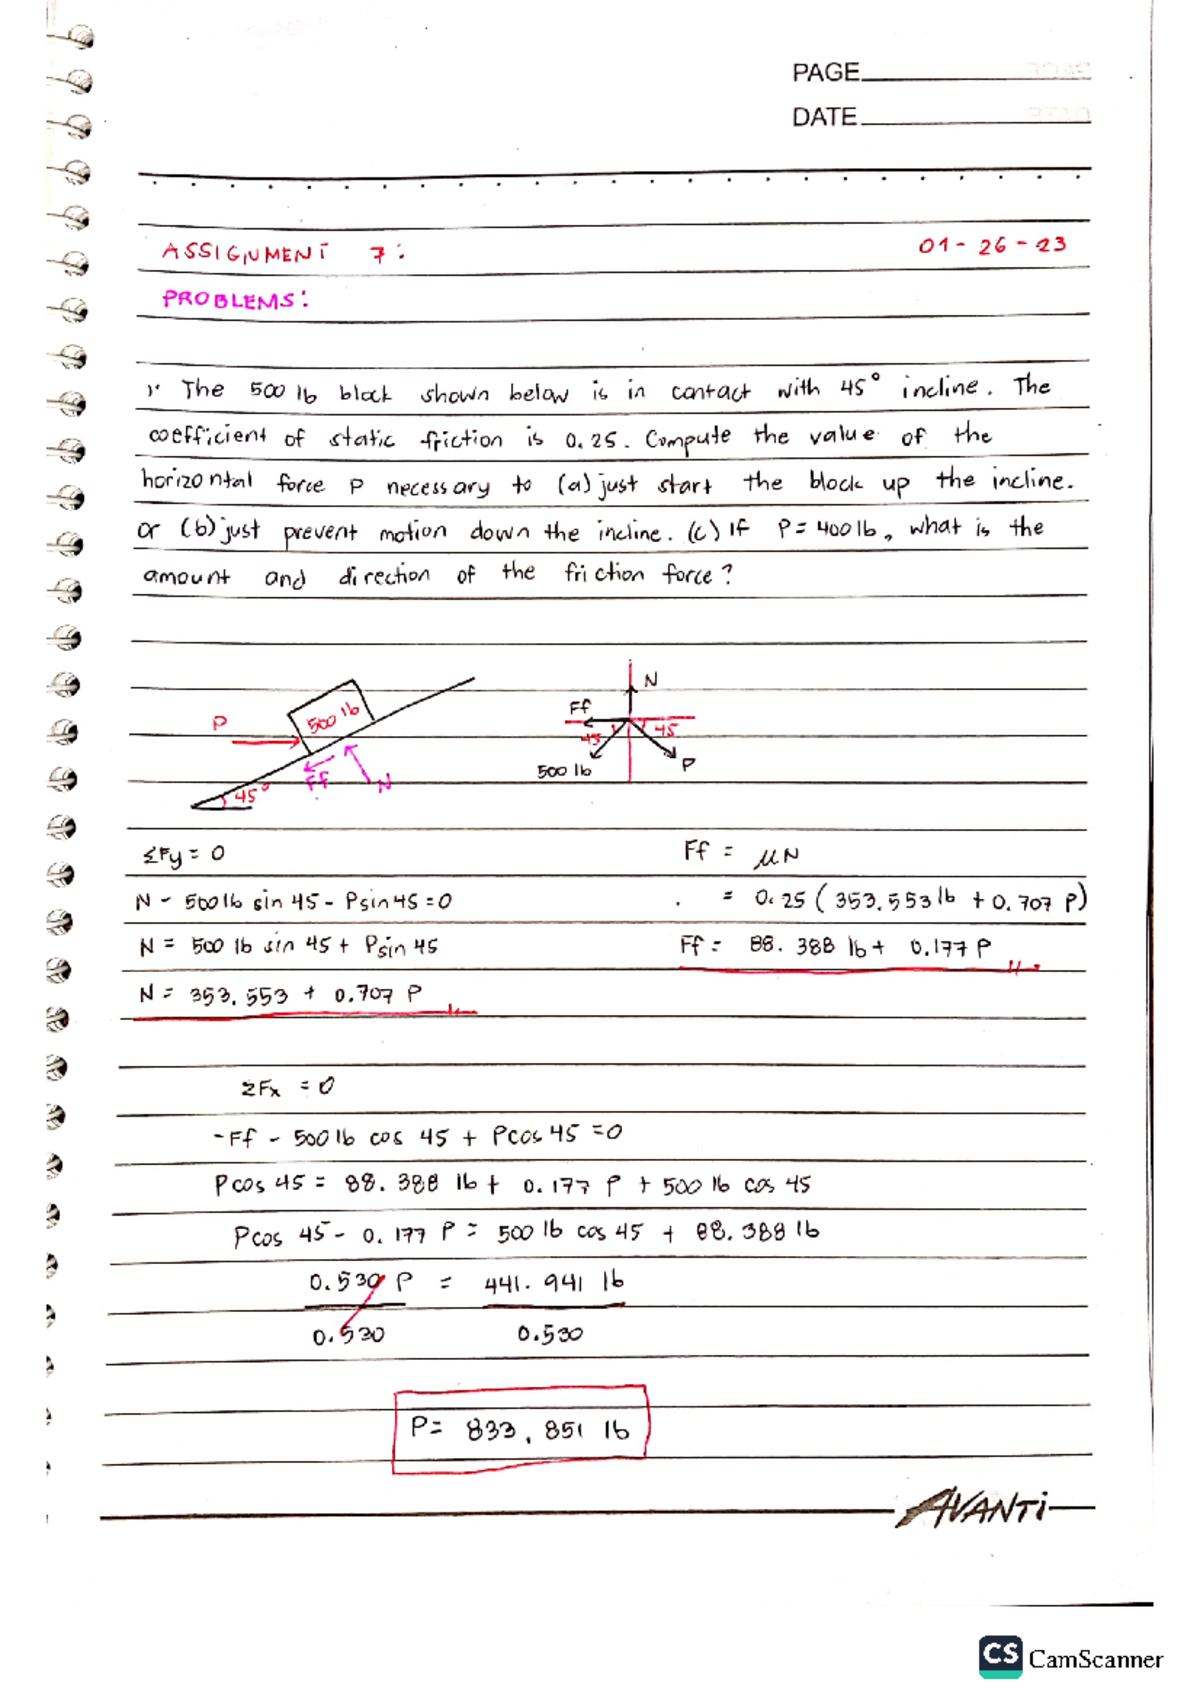 PAGE
DATE
ASSIGNMENT 7: 01-26-23
PROBLEMS:
1. The 500 lb block shown below is in contact with 45° incline. The
coefficient of static friction is 0.25. Compute the value of the
horizontal force P necessary to (a) just start the block up the incline.
or (b) just prevent motion down the incline. (c) If P = 400 lb, what is the
amount and direction of the friction force?
P
500 lb
Ff
N
45°
N
Ff
45
45
500 lb
P
ΣFy = 0
N - 500 lb sin 45 - P sin 45 = 0
N = 500 lb sin 45 + P sin 45
N = 353.553 + 0.707 P
Ff = μN
= 0.25 (353.553 lb + 0.707 P)
Ff = 88.388 lb + 0.177 P
ΣFx = 0
-Ff - 500 lb cos 45 + P cos 45 = 0
P cos 45 = 88.388 lb + 0.177 P + 500 lb cos 45
P cos 45 - 0.177 P = 500 lb cos 45 + 88.388 lb
0.530 P = 441.941 lb
0.530 0.530
P = 833.851 lb
AVANTi
CS CamScanner